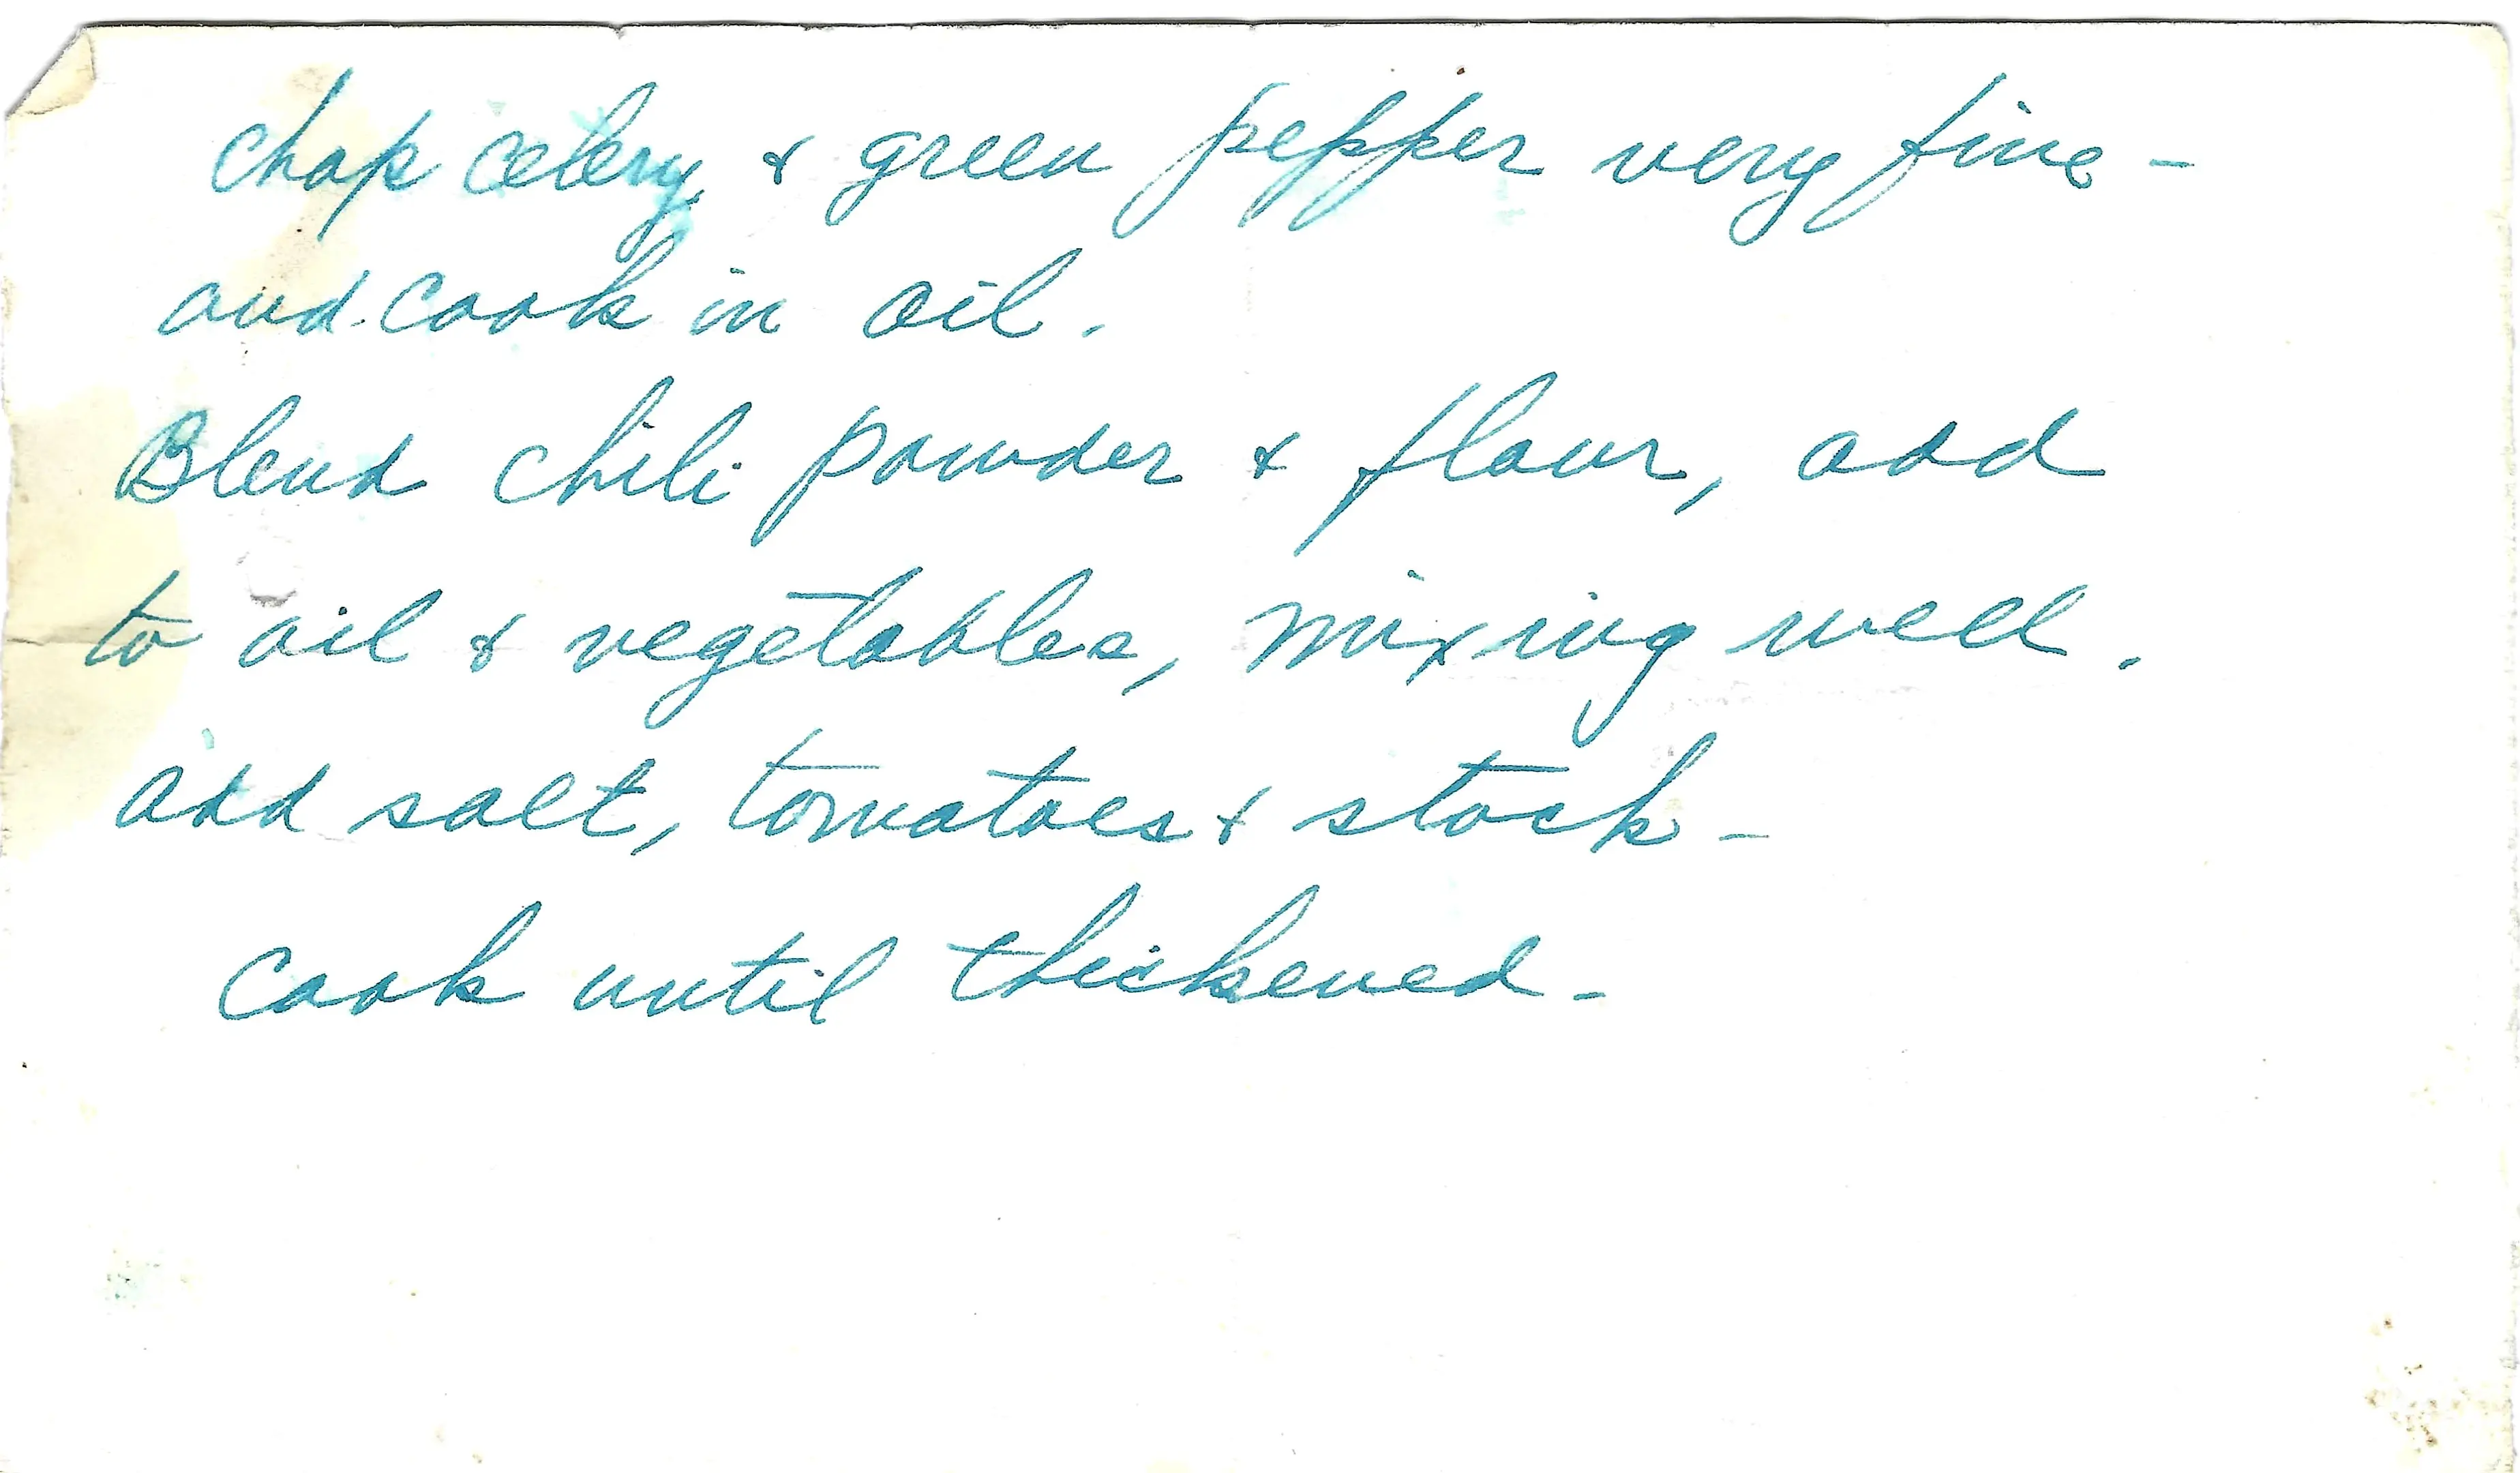 Chop celery & green pepper very fine -
and cook in oil.
Blend chili powder & flour, add
to oil & vegetables, mixing well.
add salt, tomatoes & stock -
Cook until thickened -